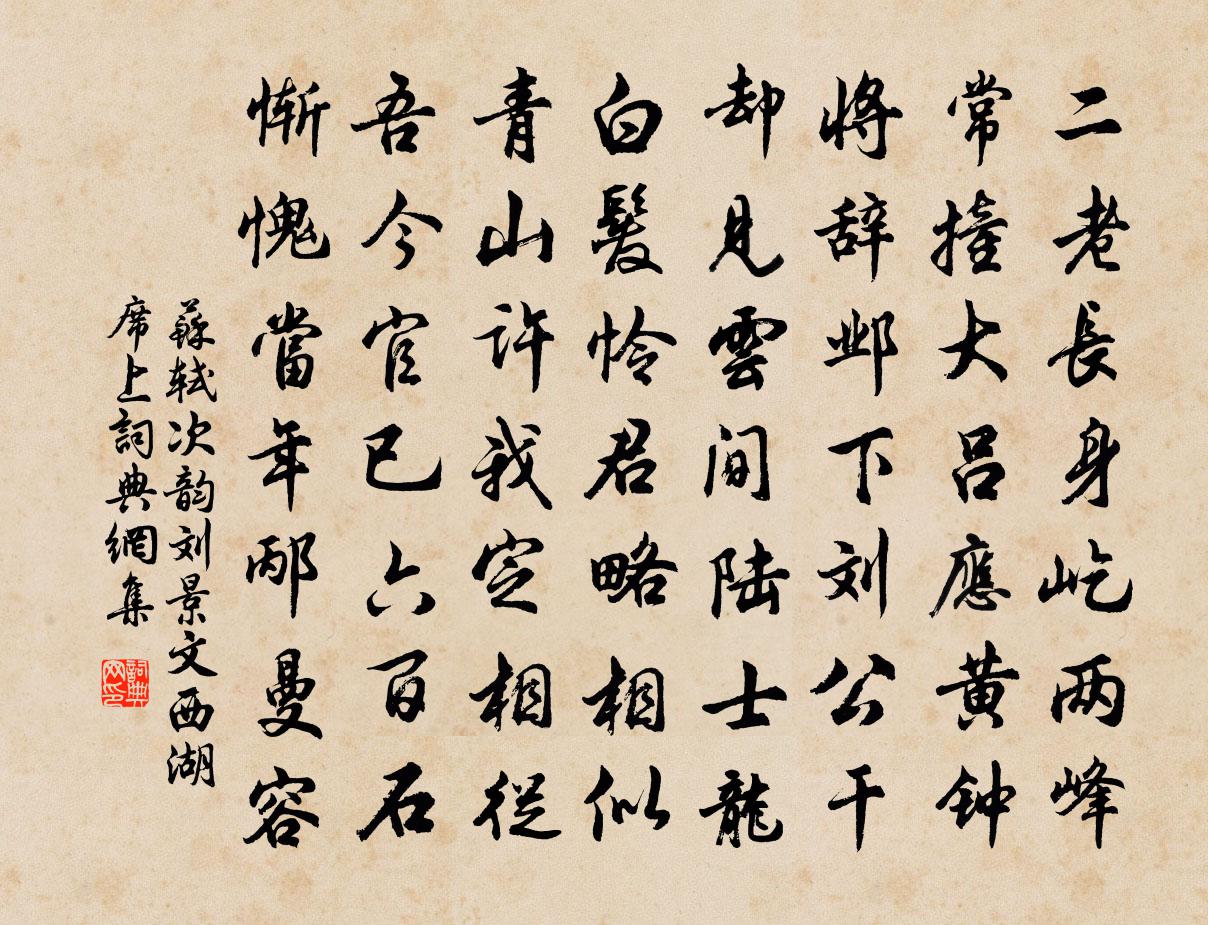 二老長身屹两峰
常撞大吕應黄钟
将辞邺下刘公干
却見雲间陆士龍
白髮怜君略相似
青山许我定相從
吾今官已六百石
慚愧當年邴曼容
蘇轼次韵刘景文西湖
席上詞典網集
詞典网印